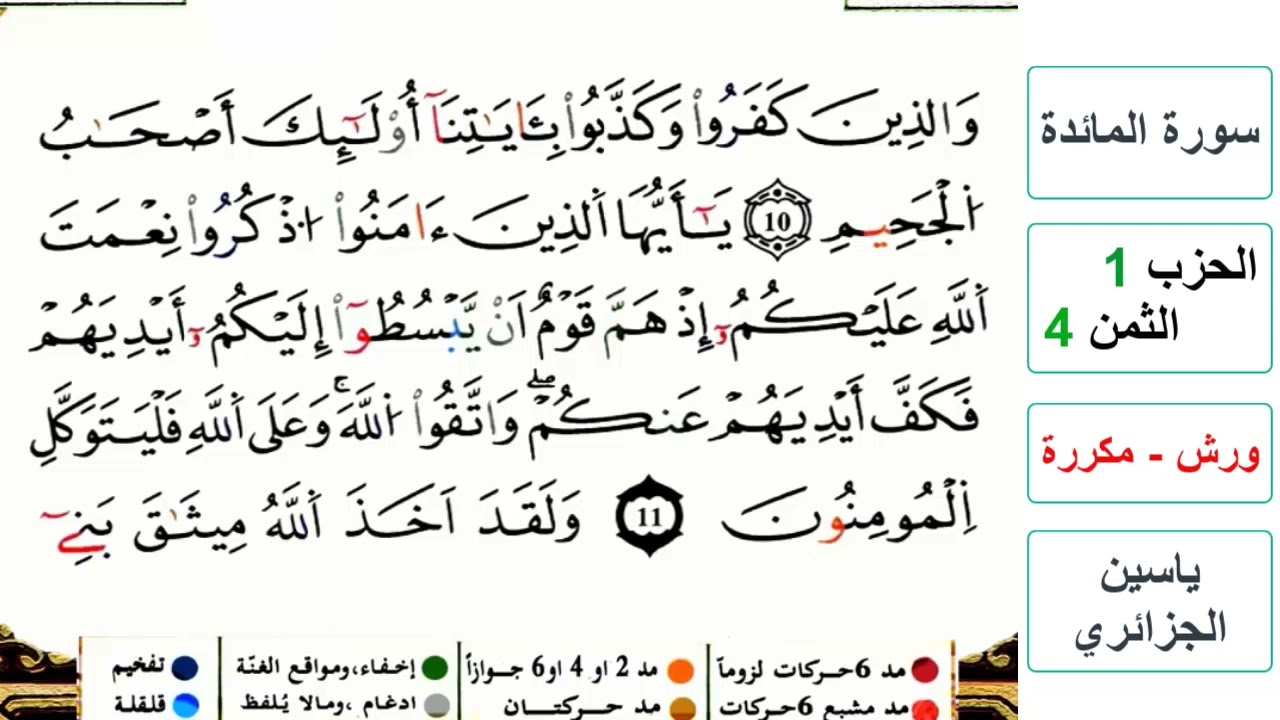 وَالذِينَ كَفَرُواْ وَكَذَّبُواْ بِـَٔايَٰتِنَآ أُوْلَٰٓئِكَ أَصْحَٰبُ
اُ۬لْجَحِيمِ 10 يَٰٓأَيُّهَا اَ۬لذِينَ ءَامَنُواْ اُ۟ذْكُرُواْ نِعْمَتَ
اَ۬للَّهِ عَلَيْكُمُۥٓ إِذْ هَمَّ قَوْمٌ اَنْ يَّبْسُطُوٓاْ إِلَيْكُمُۥٓ أَيْدِيَهُمْ
فَكَفَّ أَيْدِيَهُمْ عَنكُمْۖ وَاتَّقُواْ اُ۬للَّهَۚ وَعَلَى اَ۬للَّهِ فَلْيَتَوَكَّلِ
اِ۬لْمُومِنُونَ 11 وَلَقَدَ اَخَذَ اَ۬للَّهُ مِيثَٰقَ بَنِےٓ
سورة المائدة
الحزب 1
الثمن 4
ورش - مكررة
ياسين
الجزائري
مد 6 حركات لزوماً مد 2 او 4 او 6 جوازاً إخفاء، ومواقع الغنّة تفخيم
مد مشبع 6 حركات مد حركتان ادغام، ومالا يُلفظ قلقلة